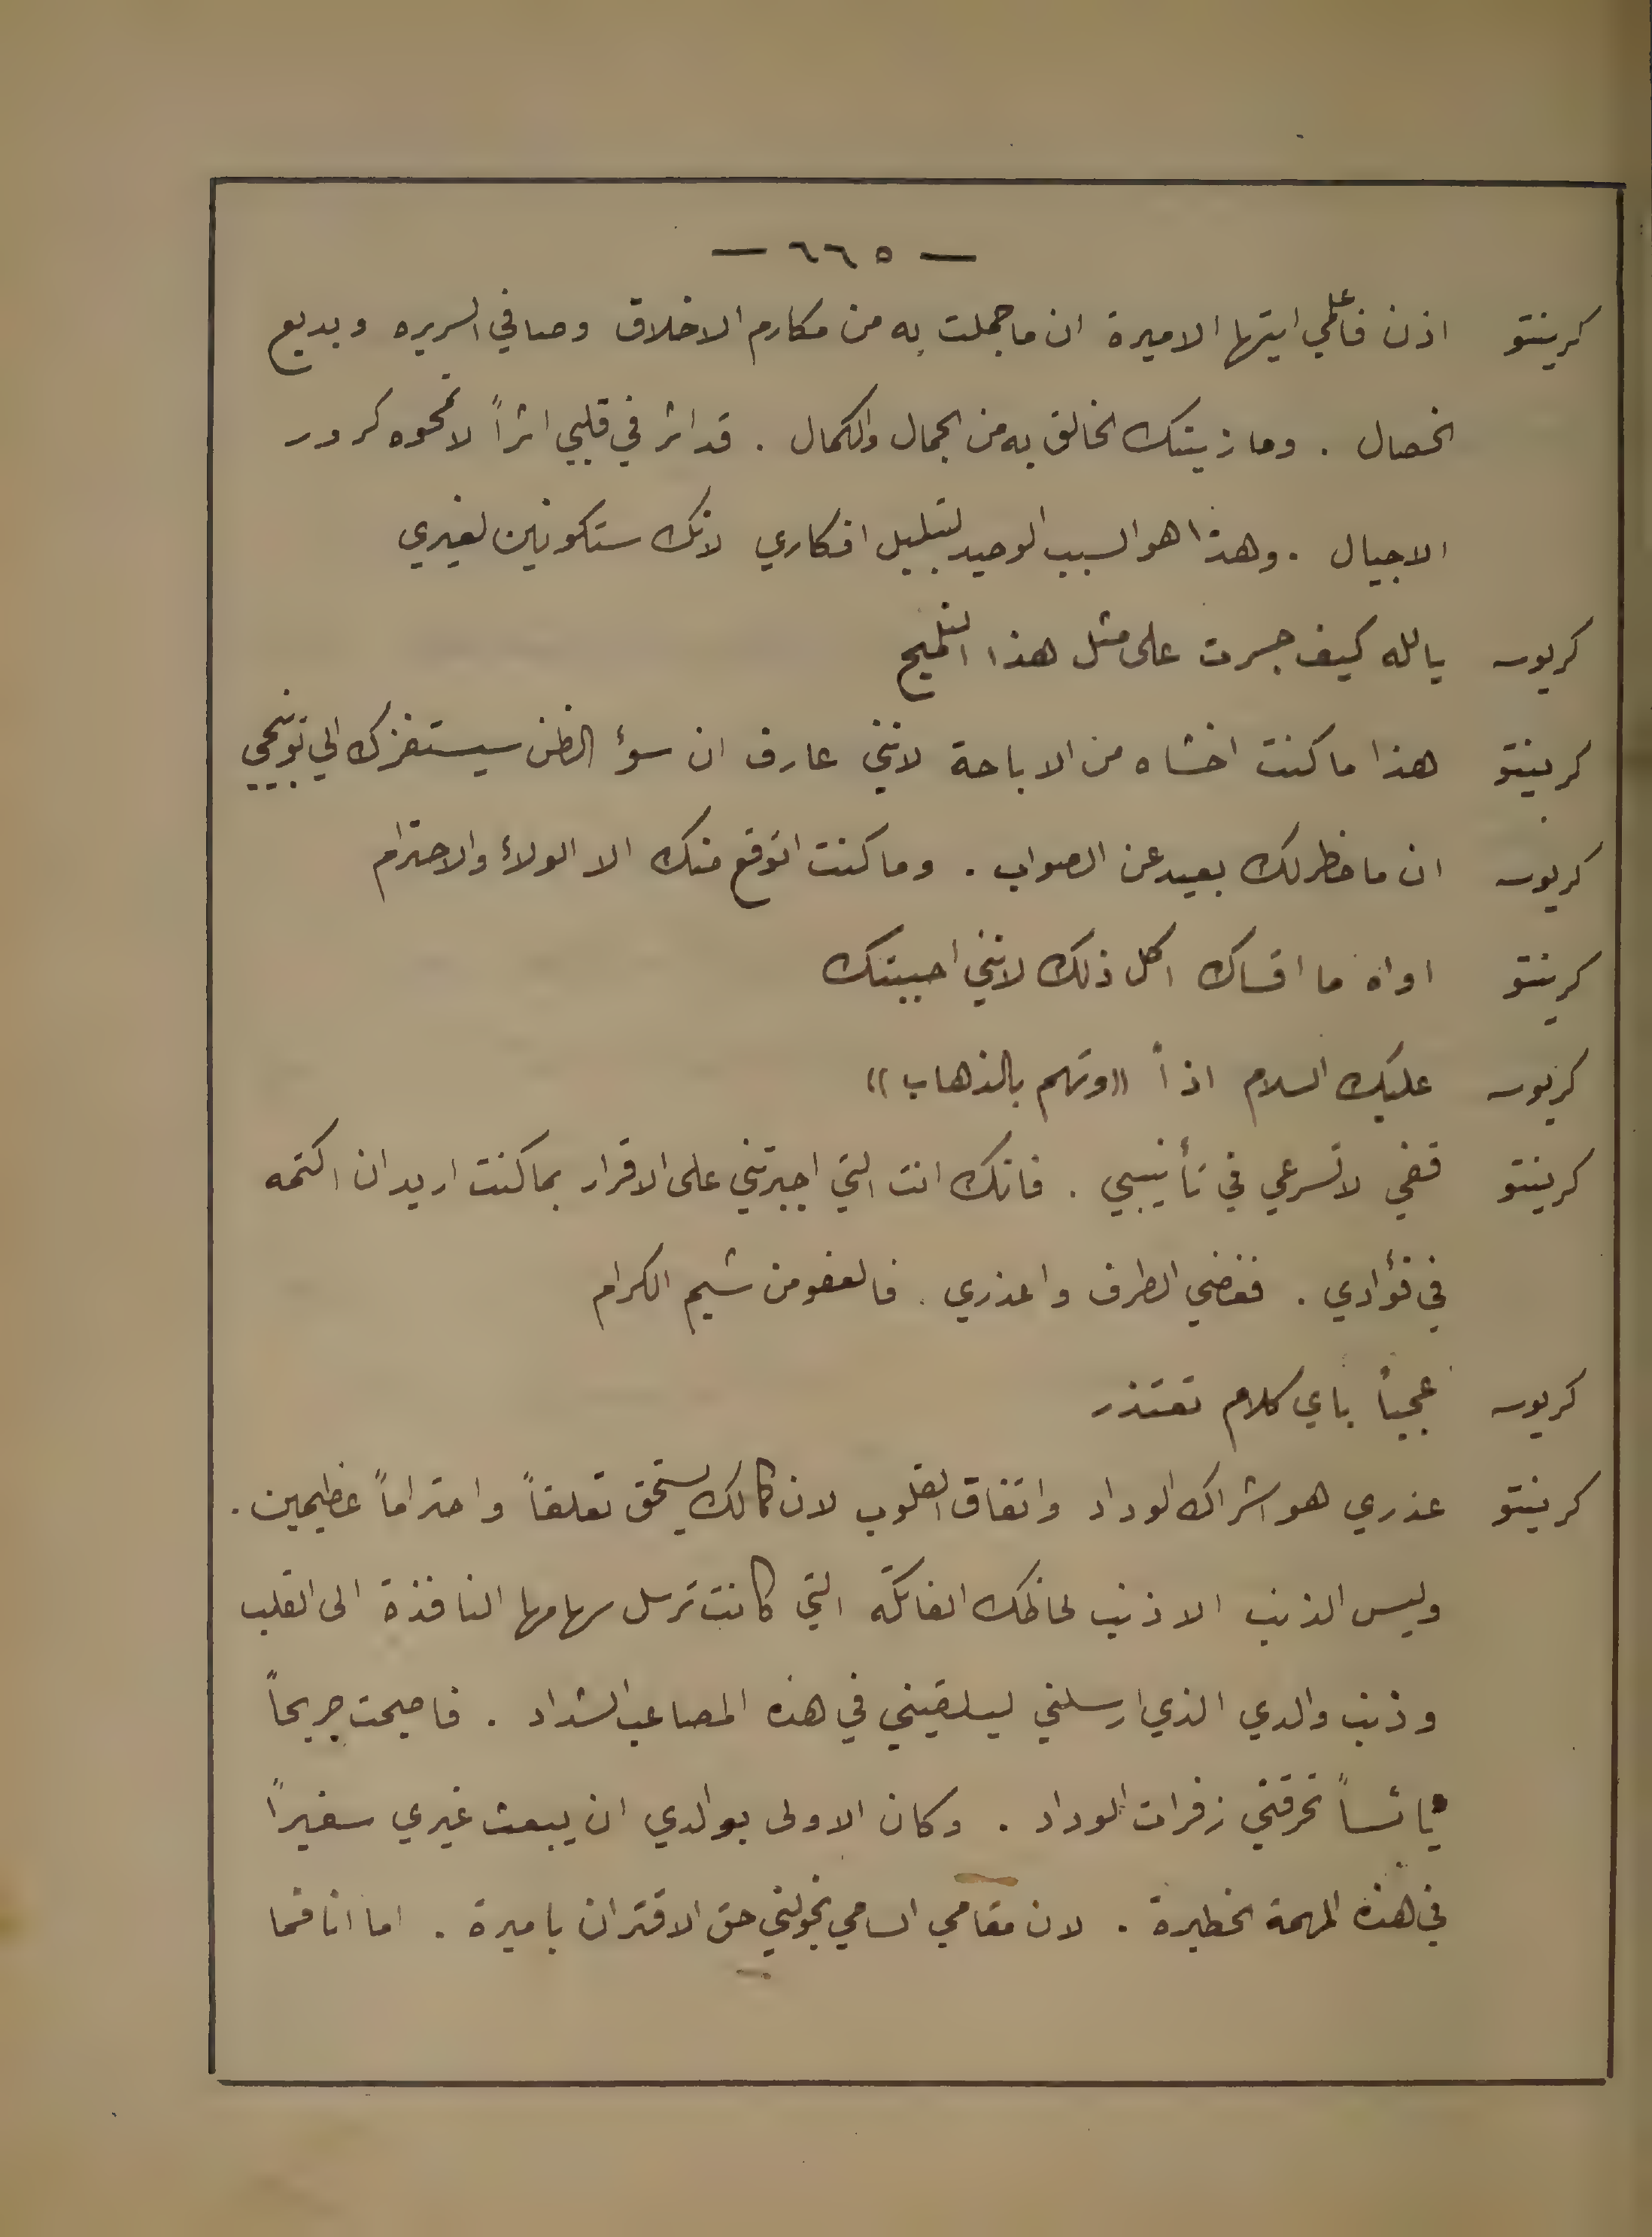 — ٦٦٥ —
كرينتو اذن فاعلمي ايتها الاميرة ان ما جملت به من مكارم الاخلاق وصافي السريره وبديع
الخصال . وما زينتك الخالق به من الجمال والكمال . قد اثر في قلبي اثراً لا تمحوه كرور
الاجيال . وهذا هو السبب الوحيد لتبلبل افكاري لانك ستكونين لغيري
كريوس يالله كيف جسرت على مثل هذا التلميح
كرينتو هذا ما كنت اخشاه من الاباحة لانني عارف ان سوٴ الظن سيستفزك الي توبيخي
كريوس ان ما خطر لك بعيد عن الصواب . وما كنت اتوقع منك الا الولاٴ والاحترام
كرينتو اواه ما اقساك اكل ذلك لانني احببتك
كريوس عليك السلام اذاً «وتهم بالذهاب»
كرينتو قفي لا تسرعي في تأنيبي . فانك انت التي اجبرتني على الاقرار بما كنت اريد ان اكتمه
في فؤادي . فغضي الطرف واعذري . فالعفو من شيم الكرام
كريوس عجباً باي كلام تعتذر
كرينتو عذري هو اشراك الوداد واتفاق القلوب لان كمالك يستحق تعلقاً واحتراماً عظيمين .
وليس الذنب الا ذنب لحاظك الفاتكة التي كانت ترسل سهامها النافذة الى القلب
وذنب والدي الذي ارسلني ليلقيني في هذه المصاعب الشداد . فاصبحت جريحاً
يائساً تحرقني زفرات الوداد . وكان الاولى بوالدي ان يبعث غيري سفيراً
في هذه المهمة الخطيرة . لان مقامي السامي يخولني حق الاقتران باميرة . اما انا فما